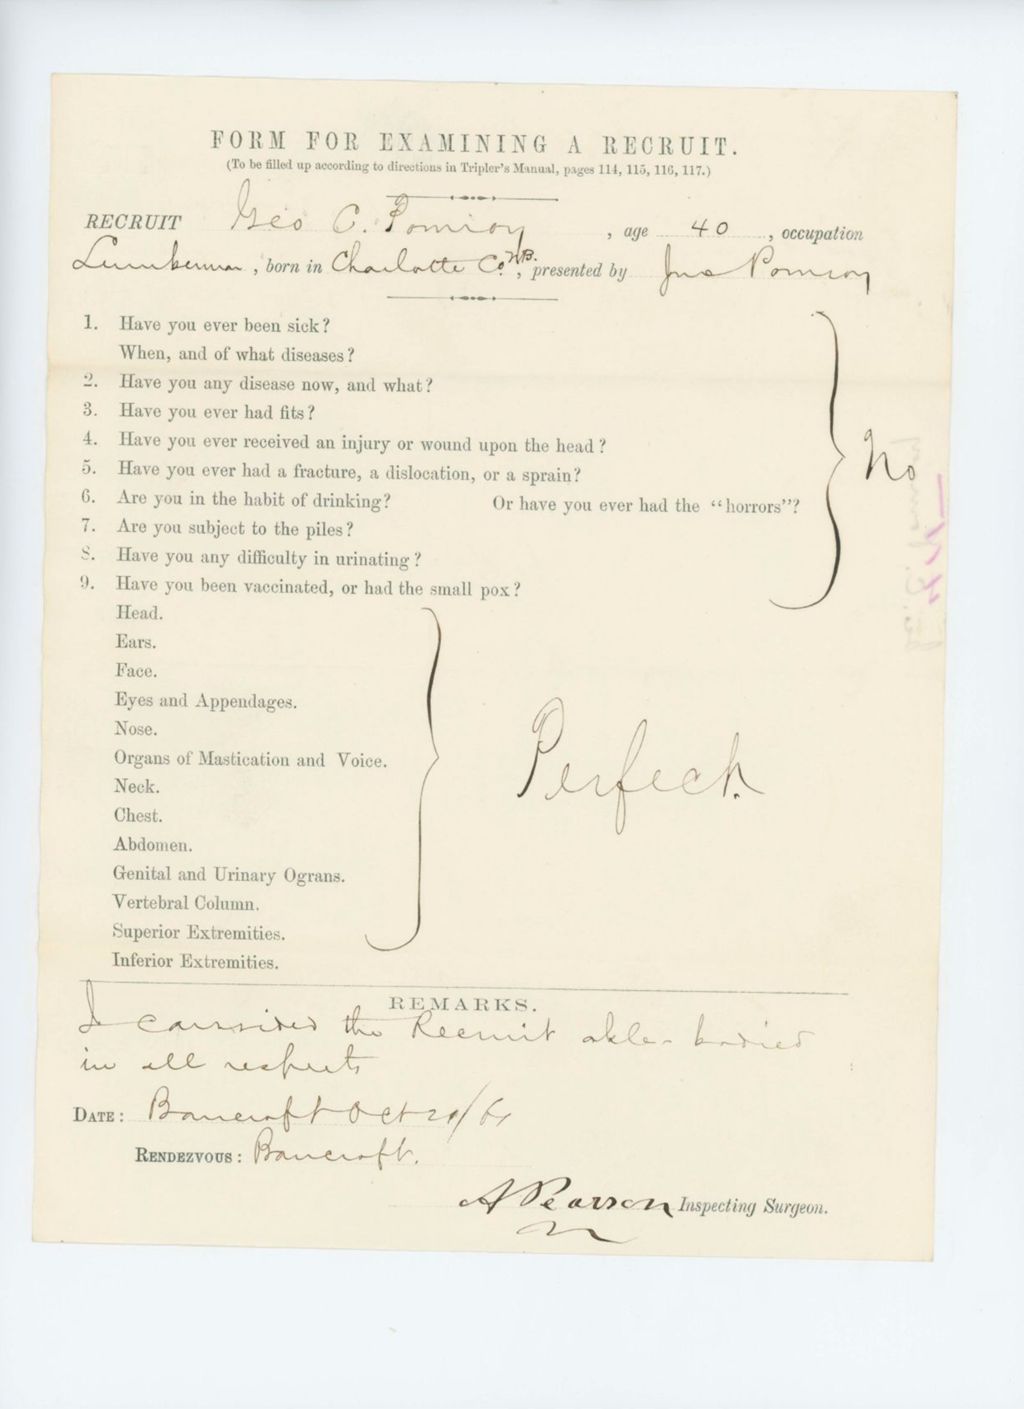 FORM FOR EXAMINING A RECRUIT.
(To be filled up according to directions in Tripler's Manual, pages 114, 115, 116, 117.)
RECRUIT Geo C. Pomroy, age 40, occupation
Lumberman, born in Charlotte Co. NB., presented by Jno Pomroy
1. Have you ever been sick?
When, and of what diseases?
2. Have you any disease now, and what?
3. Have you ever had fits?
4. Have you ever received an injury or wound upon the head?
5. Have you ever had a fracture, a dislocation, or a sprain?
No
6. Are you in the habit of drinking? Or have you ever had the "horrors"?
7. Are you subject to the piles?
8. Have you any difficulty in urinating?
9. Have you been vaccinated, or had the small pox?
Head.
Ears.
Face.
Eyes and Appendages.
Nose.
Organs of Mastication and Voice.
Perfect.
Neck.
Chest.
Abdomen.
Genital and Urinary Ograns.
Vertebral Column.
Superior Extremities.
Inferior Extremities.
REMARKS.
I considered the Recruit able-bodied
in all respects
DATE: Bancroft Oct
RENDEZVOUS: Bancroft.
A Pearson Inspecting Surgeon.